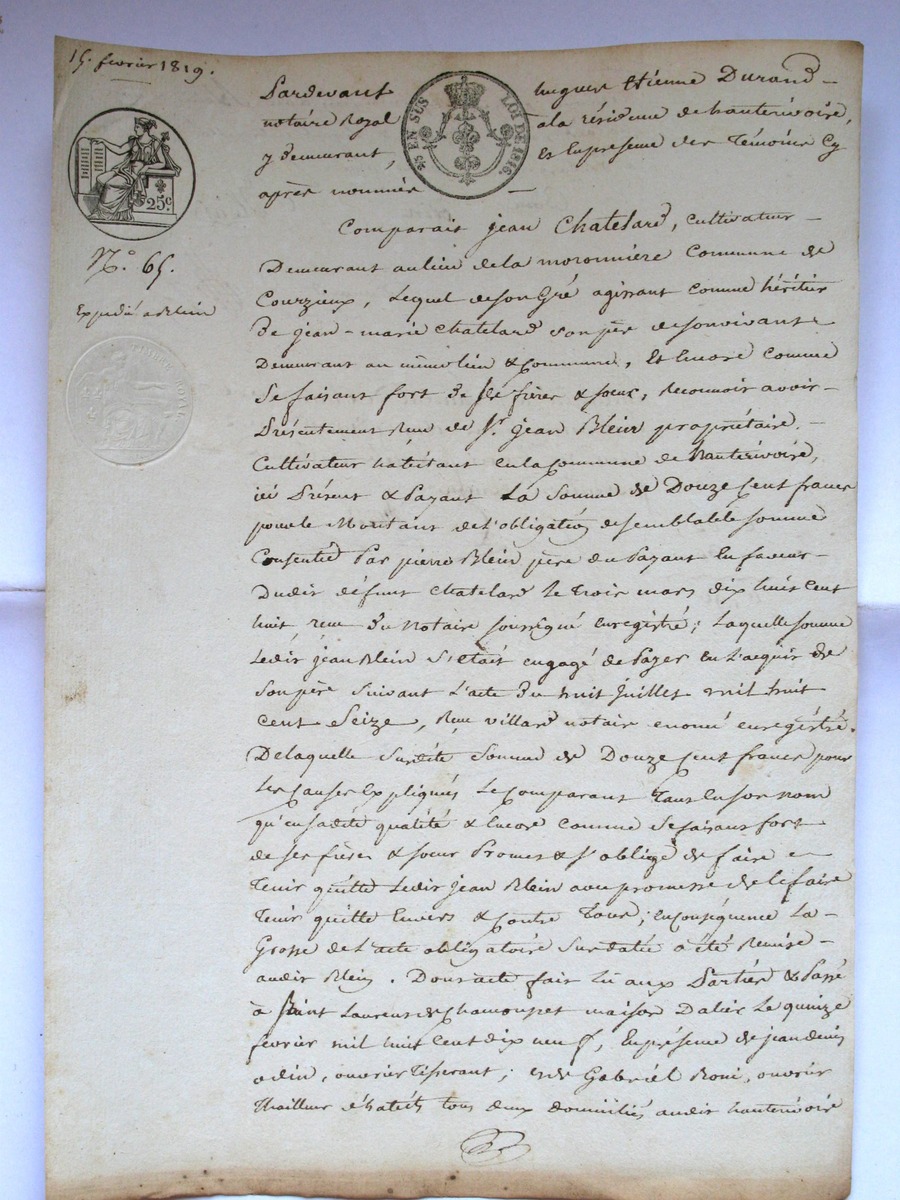 15. fevrier 1819.
25 EN SUS
LOI DE 1816.
25c
No. 65.
Expédié
Pardevant hugues Etienne Durand
notaire Royal a la résidence de hauterivoire,
y demeurant, et En presence des Témoins Cy
après nommés
Comparait jean Chatelard, cultivateur
Demeurant au lieu de la moronnière Commune de
Courzieux, Lequel de son Gré agissant comme héritier
De jean-marie Chatelard son père de son vivant
Demeurant au même lieu & Commune, Et Encore comme
Se faisant fort De ses frères & sœur, Reconnoit avoir
Présentement Reçu de Sr. jean Blein propriétaire
Cultivateur habitant en la Commune de hauterivoire,
ici Présent & Payant La Somme de Douze Cent francs
pour le Montant de l'obligation de semblable somme
Consentie Par pierre Blein père du Payant En faveur
Dudit défunt Chatelard Le Trois mars dix huit cent
huit reçue Du Notaire soussigné enregistré; Laquelle somme
Ledit jean Blein S'était engagé de Payer en L'acquit de
Son père Suivant L'acte Du huit juillet mil huit
Cent Seize, Reçu villard notaire enregistré.
De laquelle Susdite Somme de Douze Cent francs pour
Les Causes Expliquées Le Comparant Tant En son nom
qu'en sadite qualité & Encore comme Se faisant fort
de ses frères & sœur Promet & s'oblige de faire
Tenir quitte Ledit jean Blein avec promesse de Le faire
Tenir quitte Envers & Contre Tous; En Conséquence La
Grosse de L'acte obligatoire Sus datée a été Remise
audit Blein. Dont acte fait Lu aux Parties & Passé
à Saint Laurent de Chamousset maison Dalin Le quinze
fevrier mil huit Cent dix neuf, En présence de jean denis
odin, ouvrier Tisserant; et de Gabriel Roni, ouvrier
Thailleur d'habits tous deux domiciliés audit hauterivoire